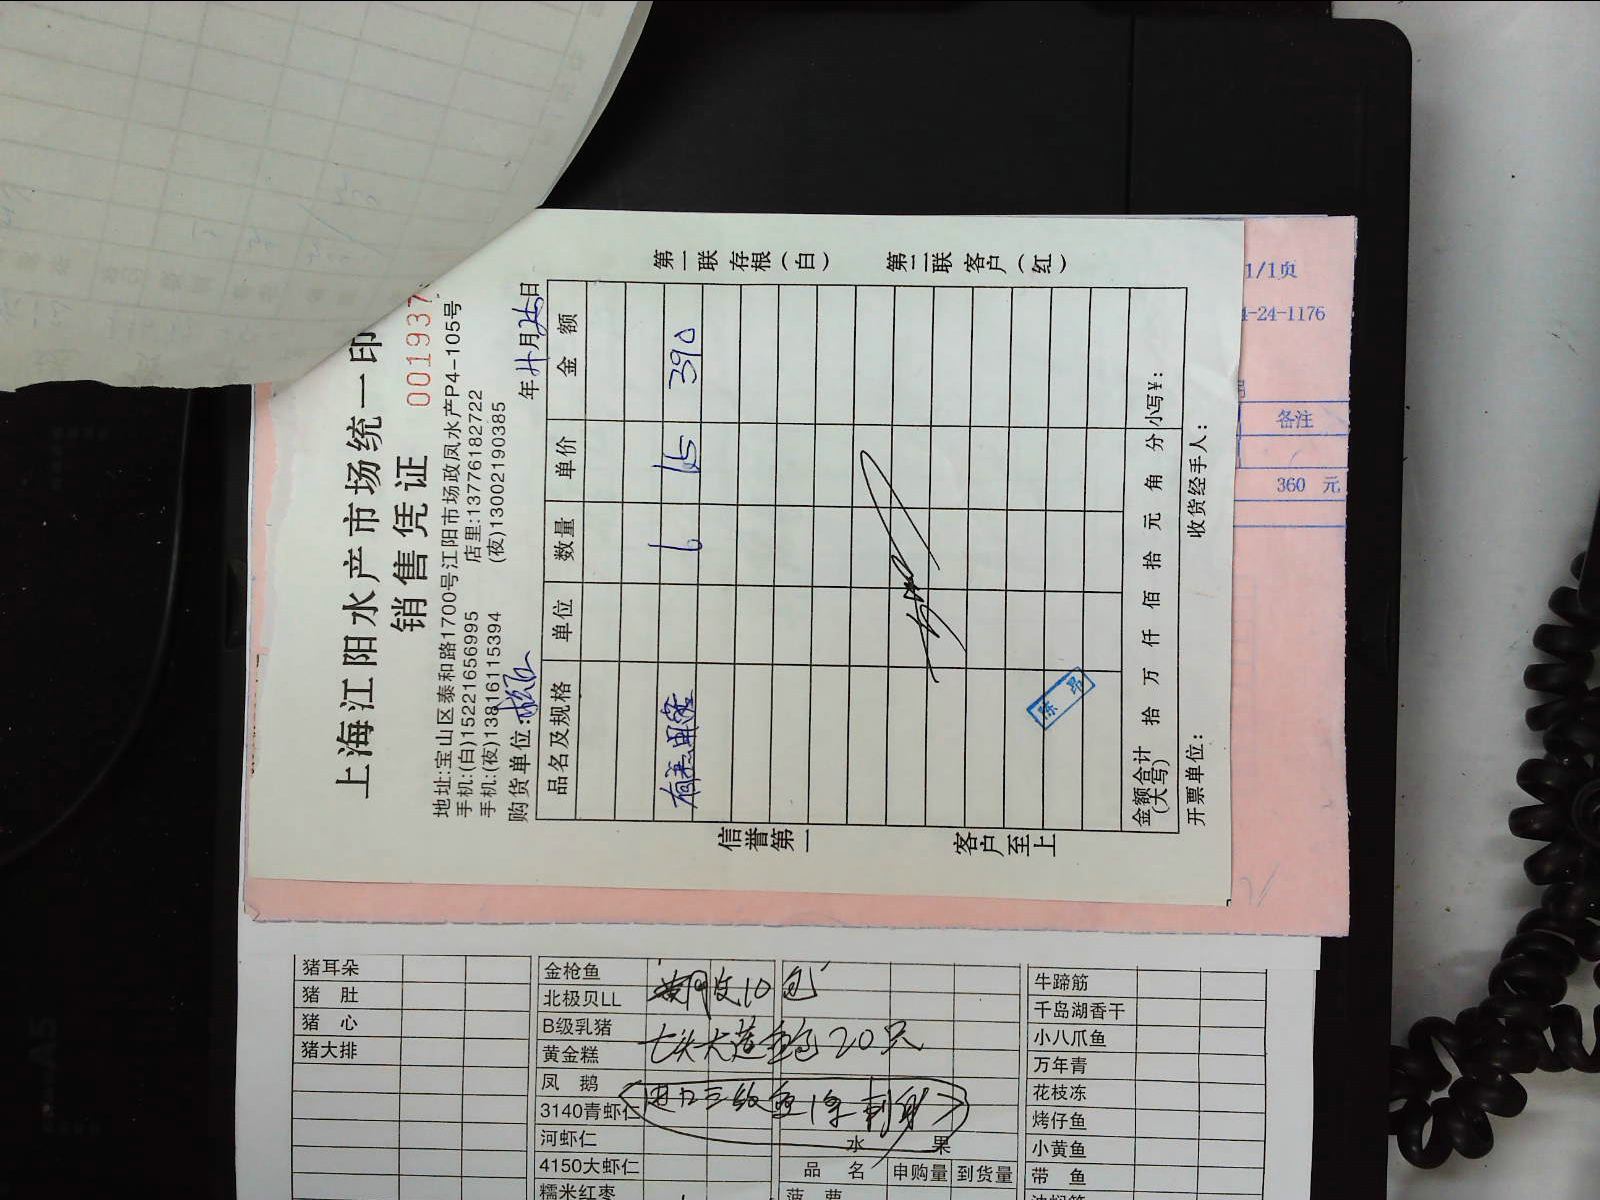 上海江阳水产市场统一印
销售凭证
001937
地址:宝山区泰和路1700号江阳市场政凤水产P4-105号
手机:(白)15221656995 店里:13776182722
手机:(夜)13816115394 (夜)13002190385
购货单位: 年 11月26日
品名及规格 单位 数量 单价 金额
6 65 390
金额合计(大写) 拾 万 仟 佰 拾 元 角 分 小写¥:
开票单位: 收货经手人:
第一联 存根(白)
第二联 客户(红)
信誉第一
客户至上
陈昂
1/1页
4-24-1176
备注
360 元
猪耳朵
猪 肚
猪 心
猪大排
金枪鱼
北极贝LL
B级乳猪
黄金糕
凤 鹅
3140青虾仁
河虾仁
4150大虾仁
糯米红枣
10包
七头大连鲍20只
水果
品 名 申购量 到货量
菠萝
牛蹄筋
千岛湖香干
小八爪鱼
万年青
花枝冻
烤仔鱼
小黄鱼
带 鱼